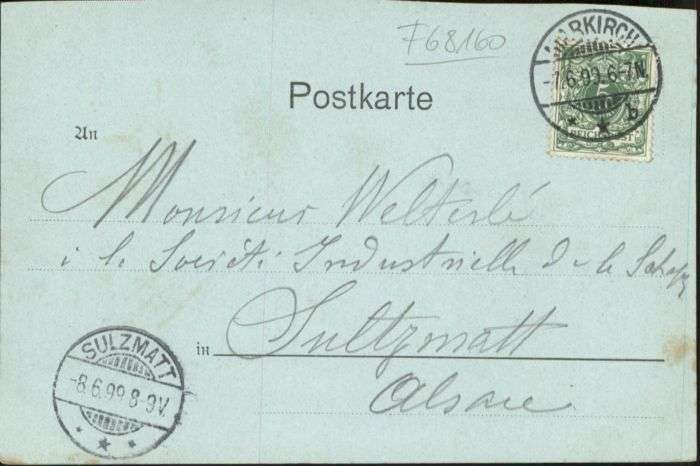 F68160
MARKIRCH
-7.6.99.6-7N.
b
5
REICHSPOST
Postkarte
An
Monsieur Welterlé
à la Société Industrielle de la
in Sultzmatt
Alsace
SULZMATT
-8.6.99.8-9V.